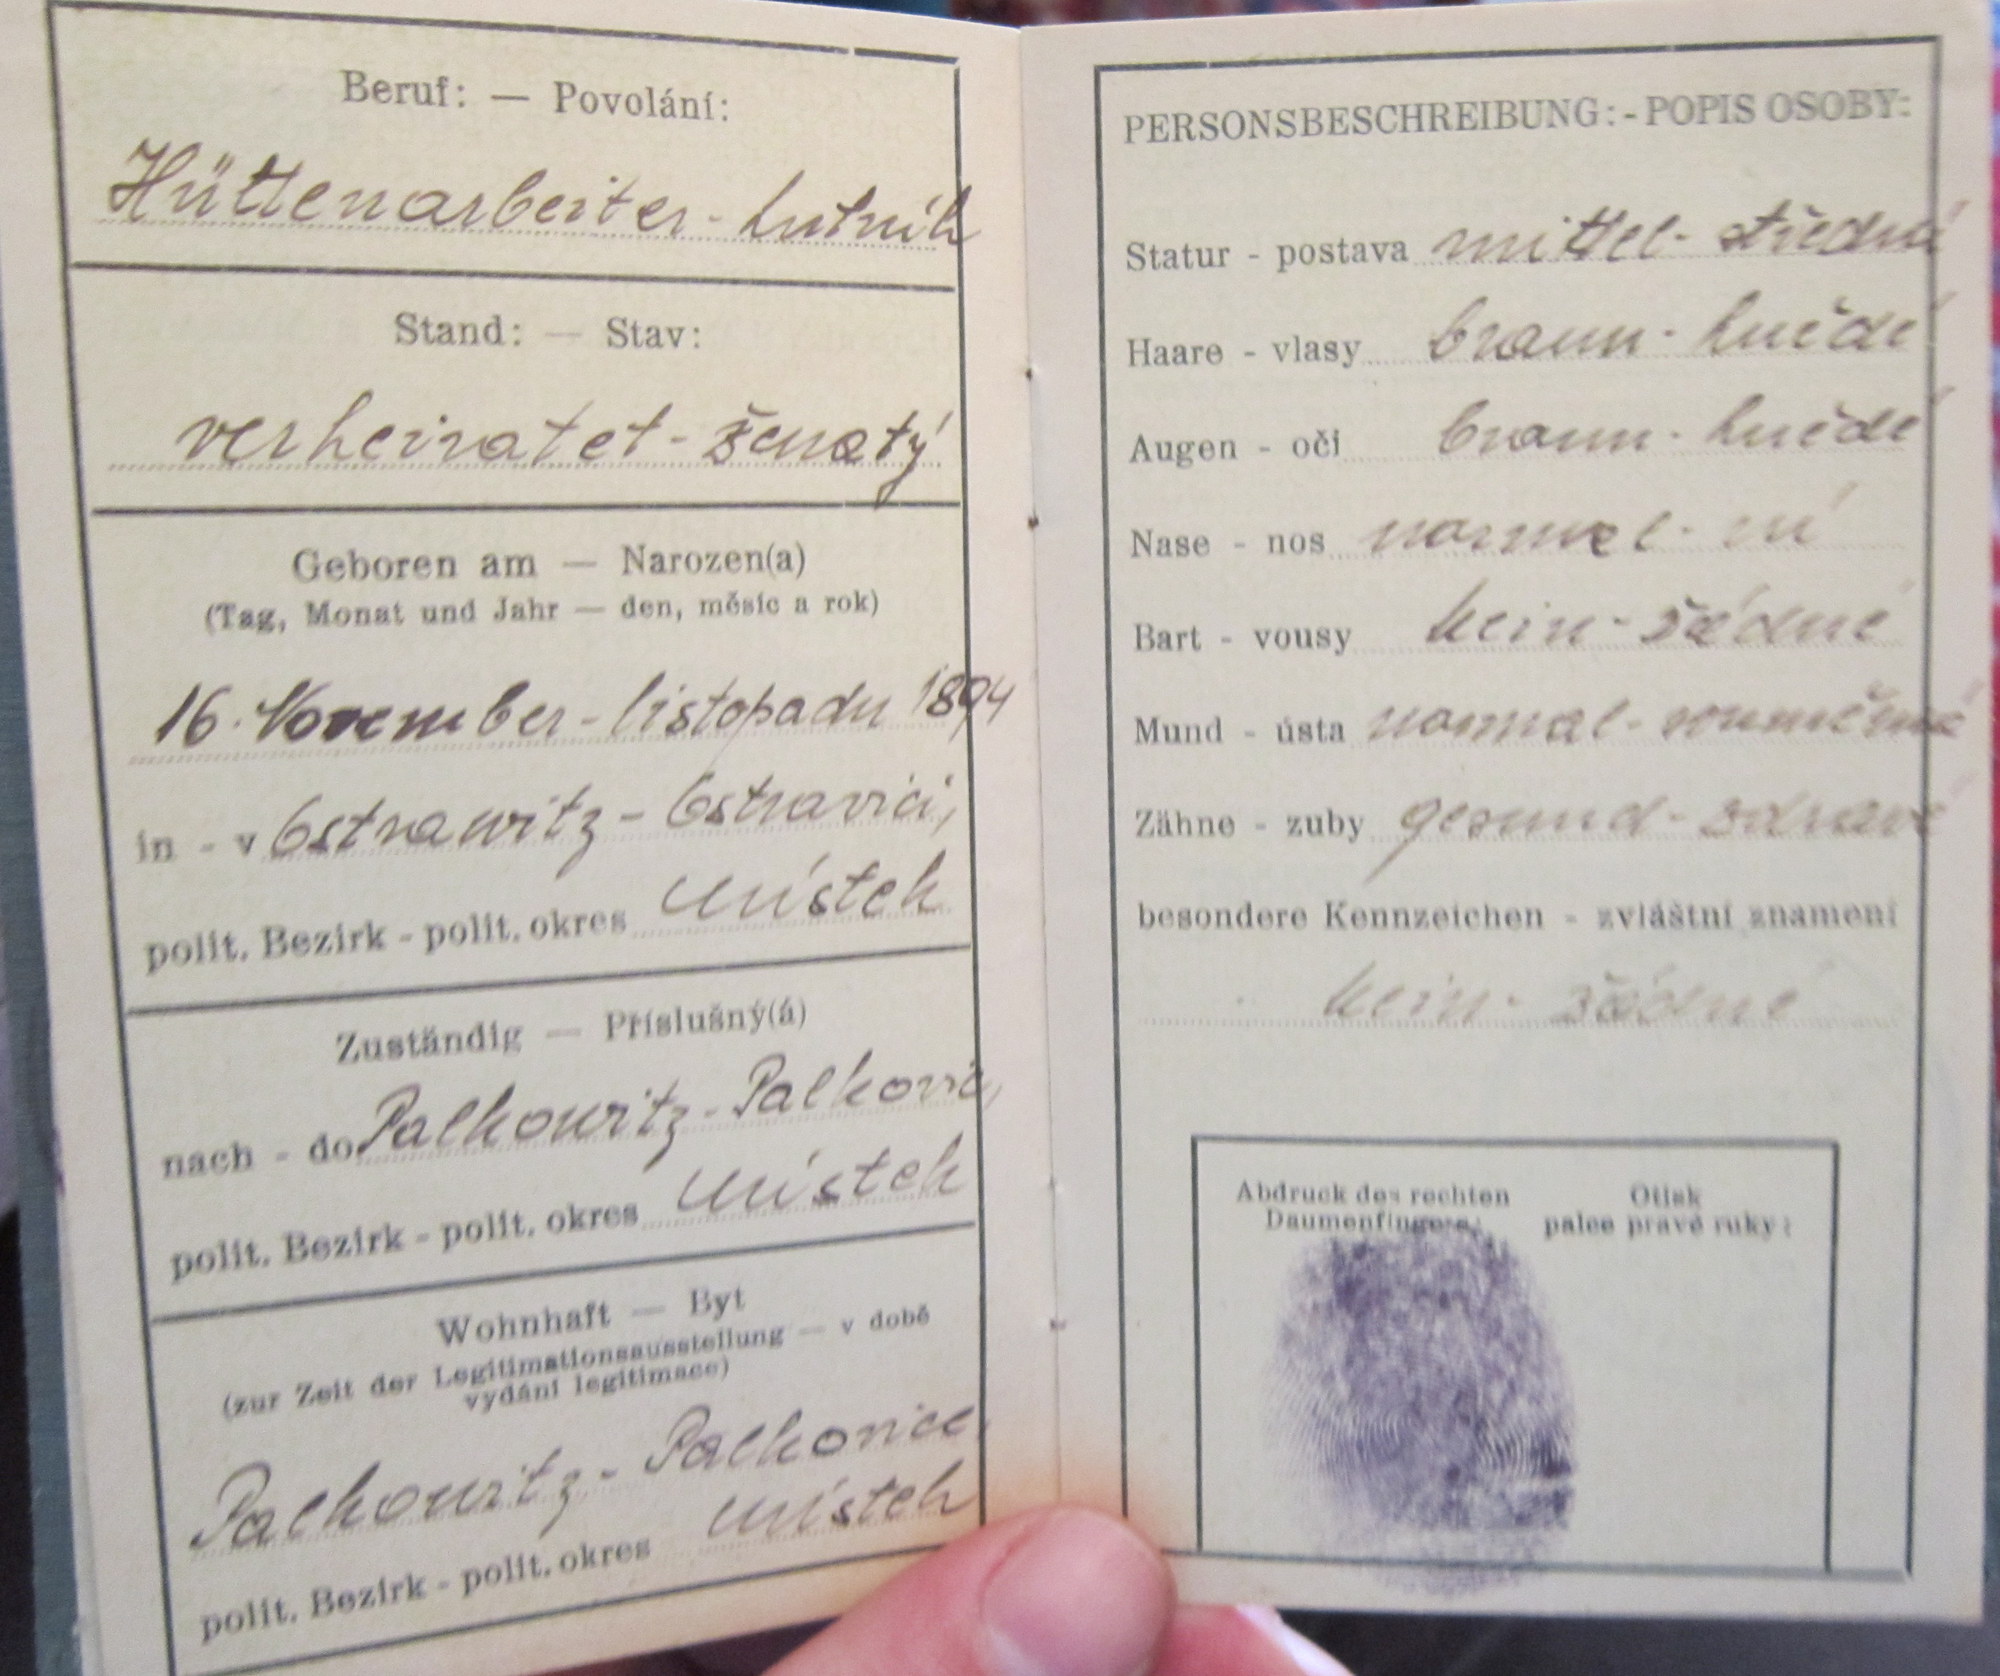 Beruf: — Povolání:
Hüttenarbeiter - hutník
Stand: — Stav:
verheiratet - ženatý
Geboren am — Narozen(a)
(Tag, Monat und Jahr — den, měsíc a rok)
16. November - listopadu 1894
in - v Ostrawitz - Ostravici,
polit. Bezirk - polit. okres Místek
Zuständig — Příslušný(á)
nach - do Palkowitz - Palkovic,
polit. Bezirk - polit. okres Místek
Wohnhaft — Byt
(zur Zeit der Legitimationsausstellung — v době
vydání legitimace)
Palkowitz - Palkovice
polit. Bezirk - polit. okres Místek
PERSONSBESCHREIBUNG: - POPIS OSOBY:
Statur - postava mittel - střední
Haare - vlasy braun - hnědé
Augen - oči braun - hnědé
Nase - nos normal -
Bart - vousy kein - žádné
Mund - ústa normal - souměrná
Zähne - zuby gesund - zdravé
besondere Kennzeichen - zvláštní znamení
kein - žádné
Abdruck des rechten Otisk
Daumenfingers: palce pravé ruky: